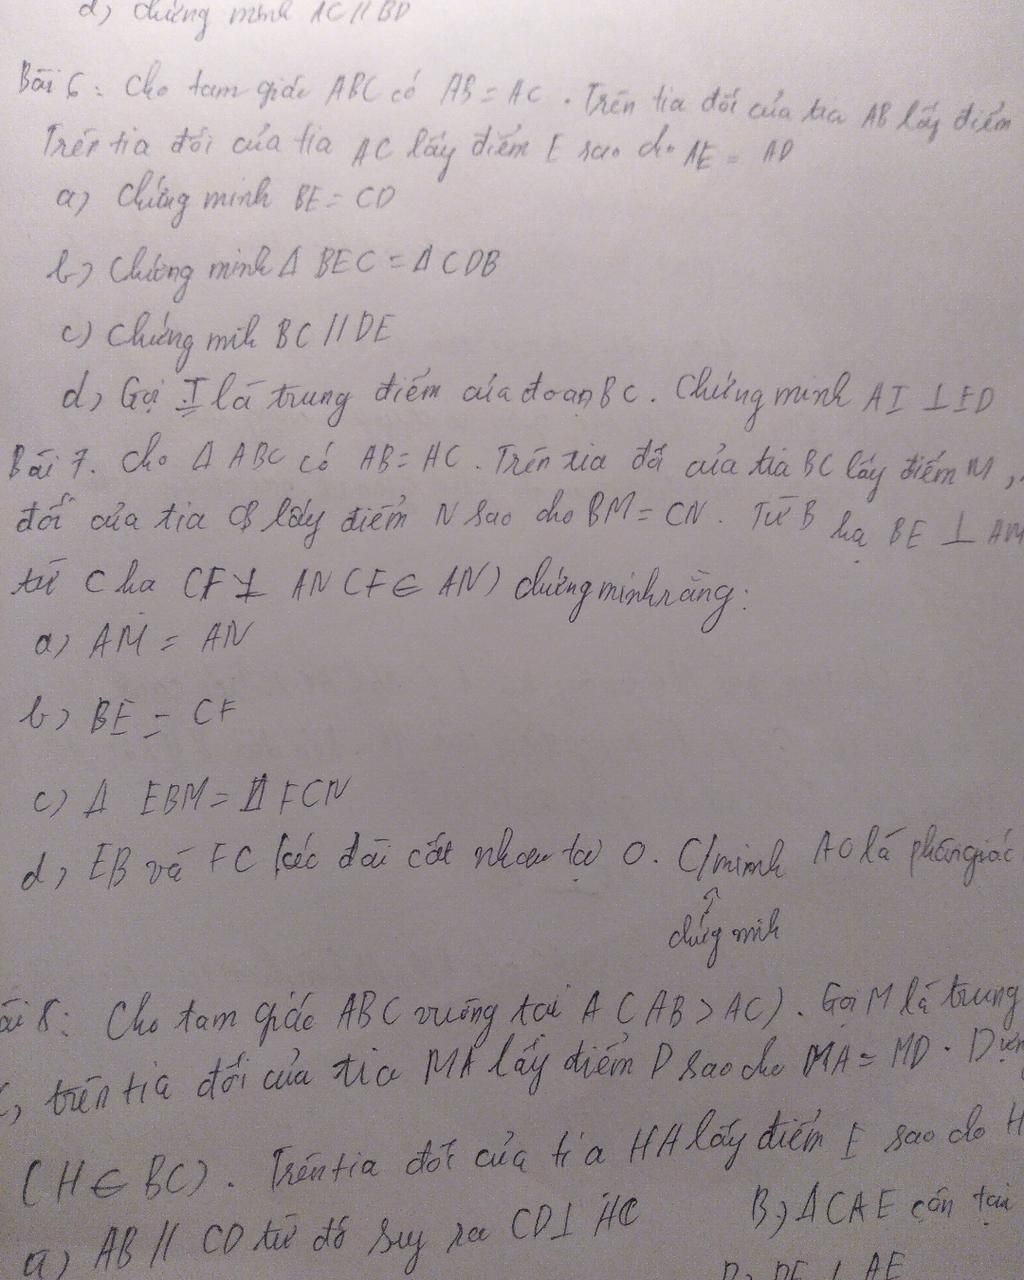 d) Chứng minh AC // BD
Bài 6: Cho tam giác ABC có AB = AC. Trên tia đối của tia AB lấy điểm
Trên tia đối của tia AC lấy điểm E sao cho AE = AD
a) Chứng minh BE = CD
b) Chứng minh Δ BEC = Δ CDB
c) Chứng mih BC // DE
d) Gọi I là trung điểm của đoạn BC. Chứng minh AI ⊥ ED
Bài 7. Cho Δ ABC có AB = AC. Trên tia đối của tia BC lấy điểm M,
đối của tia CB lấy điểm N sao cho BM = CN. Từ B hạ BE ⊥ AM
từ C hạ CF ⊥ AN (F ∈ AN) chứng minh rằng:
a) AM = AN
b) BE = CF
c) Δ EBM = Δ FCN
d) EB và FC kéo dài cắt nhau tại O. C/minh AO là phân giác
chứng mih
ài 8: Cho tam giác ABC vuông tại A (AB > AC). Gọi M là trung
C, trên tia đối của tia MA lấy điểm D sao cho MA = MD. Dựn
(H ∈ BC). Trên tia đối của tia HA lấy điểm E sao cho H
a) AB // CD từ đó suy ra CD ⊥ AC B) Δ CAE cân tại
D) DE ⊥ AE